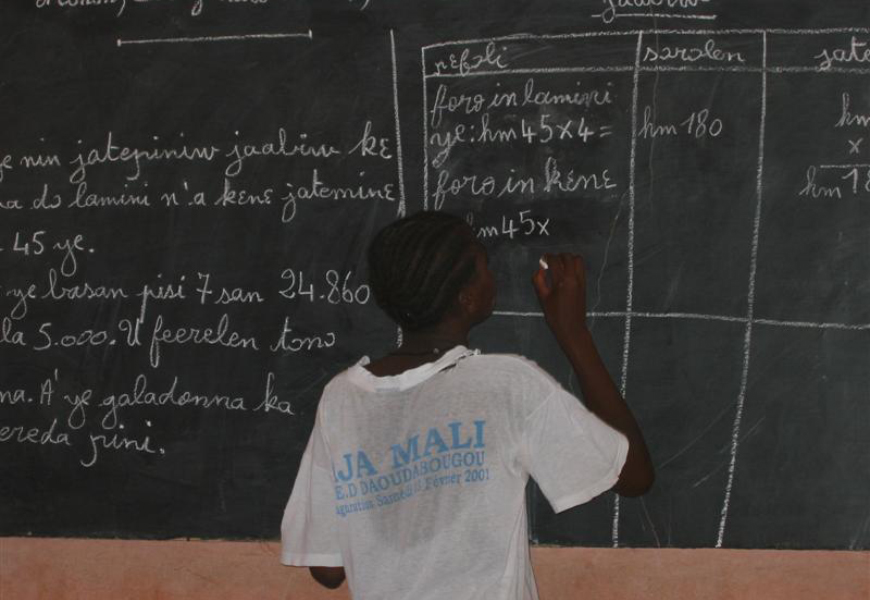 jaabiw
ye nin jatepiniw jaabiw kɛ
do lamini n'a kɛnɛ jatemine
45 ye.
ye basan pisi 7 san 24.860
la 5.000. U feerelen tɔnɔ
na. A' ye galadonna ka
sereda ɲini.
ɲɛfɔli
sɔrɔlen
jate
foro in lamini
ye: hm 45 x 4 =
hm 180
hm
x
hm 18
foro in kɛnɛ
hm 45 x
JA MALI
E.D DAOUDABOUGOU
Samedi Février 2001